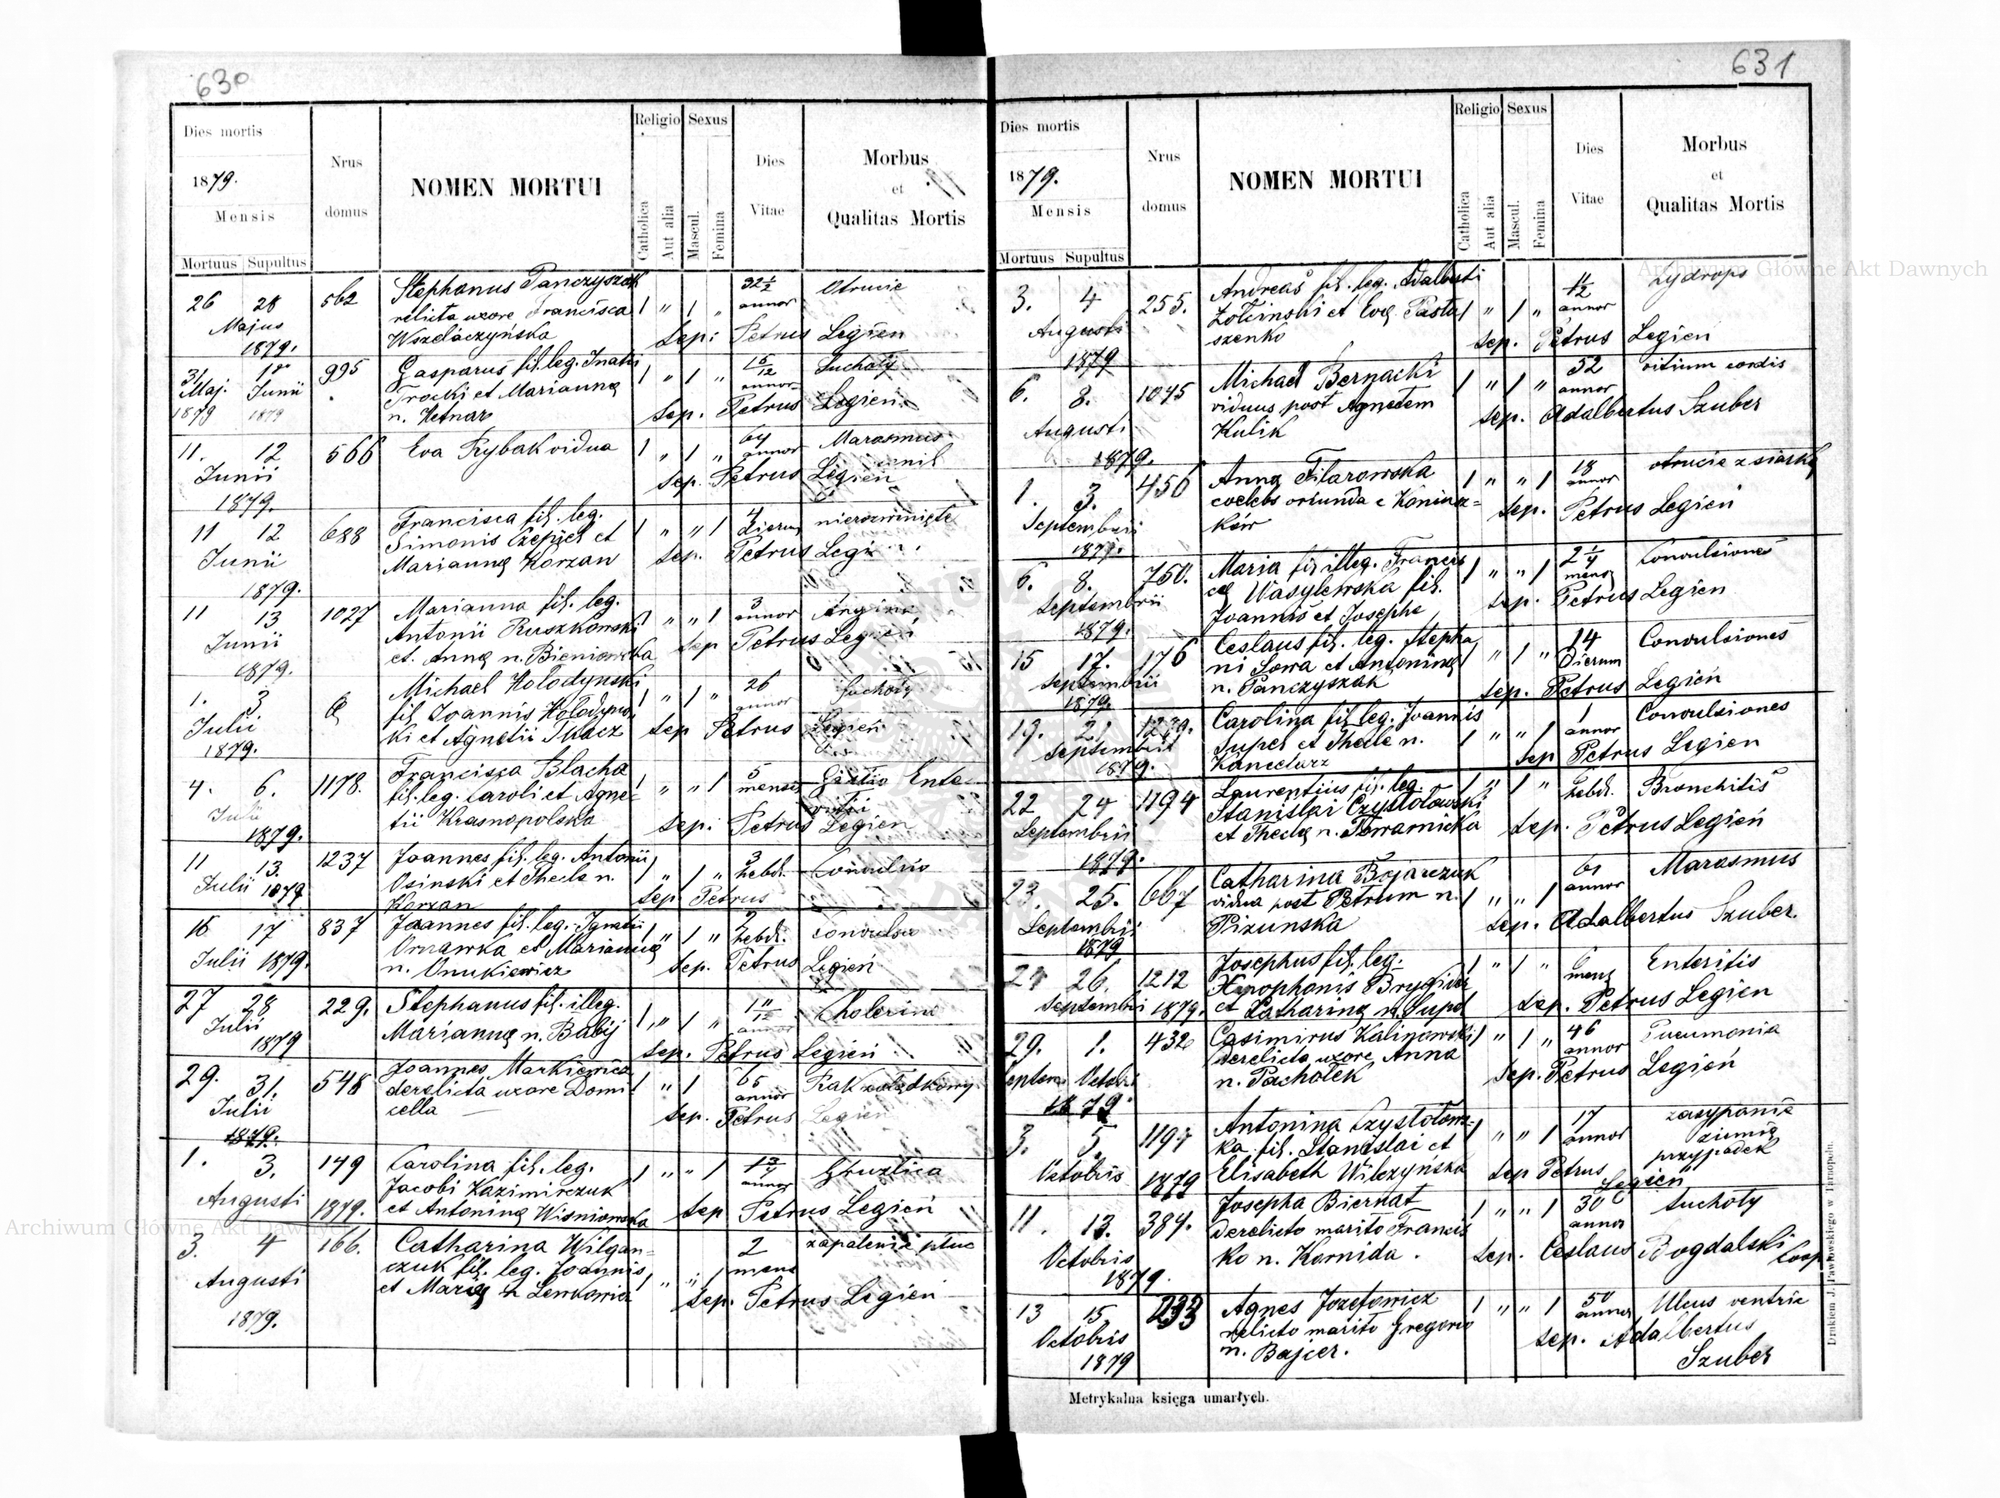 630
Dies mortis
1879.
Mensis
Mortuus Supultus
Nrus
domus
NOMEN MORTUI
Religio
Catholica
Aut alia
Sexus
Mascul.
Femina
Dies
Vitae
Morbus
et
Qualitas Mortis
26 28
Majus
1879.
562
Stephanus Panczyszak
relicta uxore Francisca
Wszelaczyńska
1 " 1 "
32 1/2
annor
Otrucie
sep: Petrus Legien
31 1
Maj. Junii
1879 1879
995
Gasparus fil. leg. Inatii
Trocki et Marianną
n. Hetnar
1 " 1 "
15/12
annor
Suchoty
sep. Petrus Legien
11. 12
Junii
1879.
566
Eva Rybak vidua
1 " 1 "
64
annor
Marasmus
senil
sep. Petrus Legien
11 12
Junii
1879.
688
Francisca fil. leg.
Simonis Czepiel et
Marianną Korzan
1 " " 1
4
Dierum
nierozwinięte
sep. Petrus
11 13
Junii
1879.
1027
Marianna fil. leg.
Antonii Ruszkowski
et. Anną n. Bieniowska
1 " " 1
3
annor
Angina
sep Petrus Legień
1. 3
Julii
1879.
Michael Holodynski
fil. Joannis Holodyns-
ki et Agnetii Tkacz
1 " 1 "
26
annor
Suchoty
sep Petrus Legień
4. 6.
Julii
1879.
1178.
Francisca Blacha
fil. leg. Caroli et Agne-
tii Krasnopolska
1 " " 1
5
menses
Gastro Ente-
sep: Petrus Legien
11 13.
Julii 1879
1237
Joannes fil. leg. Antonii
Osinski et Thecle n.
Korzan
1 " 1 "
3
hebd.
sep Petrus
16 17
Julii 1879.
837
Joannes fil. leg. Ignatii
et Marianną
n. Onukiewicz
1 " 1 "
2
hebd.
sep. Petrus Legień
27 28
Julii
1879
229.
Stephanus fil. illeg.
Marianną n. Babij
1 " 1 "
1 11/12
annor
Cholerine
sep. Petrus Legień
29. 31.
Julii
1879.
548
Joannes Markiewicz
derelicta uxore Domi
cella
1 " 1
65
annor
Rak żołądkowy
sep. Petrus Legien
1. 3.
Augusti 1879.
149
Carolina fil. leg.
Jacobi Kazimirczuk
et Antoniną Wisniowska
1 " " 1
annor
Gruzlica
sep Petrus Legień
3. 4
Augusti
1879.
166.
Catharina Wilgan=
czuk fil. leg. Joannis
et Marią n Lenkowicz
1 " " 1
2
mens
zapalenie płuc
sep. Petrus Legien
631
Dies mortis
1879.
Mensis
Mortuus Supultus
Nrus
domus
NOMEN MORTUI
Religio
Catholica
Aut alia
Sexus
Mascul.
Femina
Dies
Vitae
Morbus
et
Qualitas Mortis
3. 4
Augusti
1879
255.
Andreas fil. leg. Adalberti
et Evą Pasta
szenko
1 " 1 "
1/2
annor
hydrops
sep. Petrus Legien
6. 8.
Augusti
1879.
1045
Michael Bernacki
viduus post Agnetem
Kulik
1 " 1 "
52
annor
vitium cordis
sep. Adalbertus Szuber
1. 3.
Septembrii
1879.
456
Anna Filarowska
coelebs oriunda e Koniusz=
ków
1 " " 1
18
annor
otrucie z siarką
sep. Petrus Legień
6. 8.
Septembrii
1879.
750.
Maria fil illeg. Francis
cą Wasylewska fil.
Joannis et Josepha
1 " " 1
2 1/4
mens
Convulsiones
sep. Petrus Legien
15 17.
Septembrii
1879.
176
Ceslaus fil. leg. Stepha
ni Sowa et Antoniną
n. Panczyszak
1 " 1 "
14
Dierum
Convulsiones
sep. Petrus Legień
19. 21
Septembrii
1879.
1239.
Carolina fil. leg. Joannis
Supel et Thecle n.
Kanclarz
1 " " 1
1
annor
Convulsiones
sep Petrus Legien
22 24
Septembrii
1879.
1194
Laurentius fil. leg.
Stanislai Czystołowski
et Theclą n. Towarnicka
1 " 1 "
hebd.
Bronchitis
sep. Petrus Legień
23. 25.
Septembrii
1879
667
Catharina Bojarczuk
vidua post Petrum n.
Pizunska
1 " " 1
61
annor
Marasmus
sep. Adalbertus Szuber.
24 26.
Septembrii 1879.
1212
Josephus fil. leg.
et Catharina n. Supel
1 " 1 "
6
mens
Enteritis
sep. Petrus Legien
29. 1.
Septem Octobri
1879
432
Casimirus Kalinowski
derelicta uxore Anna
n. Pachołek
1 " 1 "
46
annor
Pneumonia
sep. Petrus Legień
3. 5.
Octobris 1879
1197
Antonina Czystołows-
ka fil. Stanislai et
Elisabeth Wilczyńska
1 " " 1
17
annor
zasypanie
ziemią
przypadek
sep Petrus Legień
11. 13.
Octobris
1879.
384.
Josepha Biernat
derelicto marito Francis
ko n. Kornida.
1 " " 1
30
annor
suchoty
sep. Ceslaus Bogdalski
Coop
13 15
Octobris
1879
233
Agnes Jozefowicz
relicto marito Gregorio
n. Bajcer.
1 " " 1
50
annor
Ulcus ventric
sep. Adalbertus
Szuber
Metrykalna księga umarłych.
Drukiem J. Pawłowskiego w Tarnopolu.
Archiwum Główne Akt Dawnych
Archiwum Główne Akt Dawnych